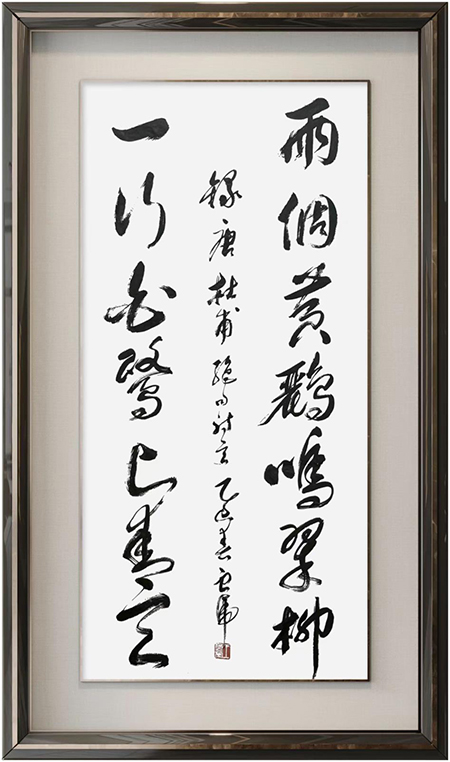 兩個黃鸝鳴翠柳
一行白鷺上青天
錄唐杜甫絕句 乙巳春